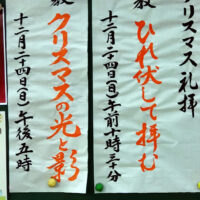 クリスマス礼拝
ひれ伏して拝む
十二月二十四日(日)午前十時三十分
クリスマスの光と影
十二月二十四日(日)午後五時